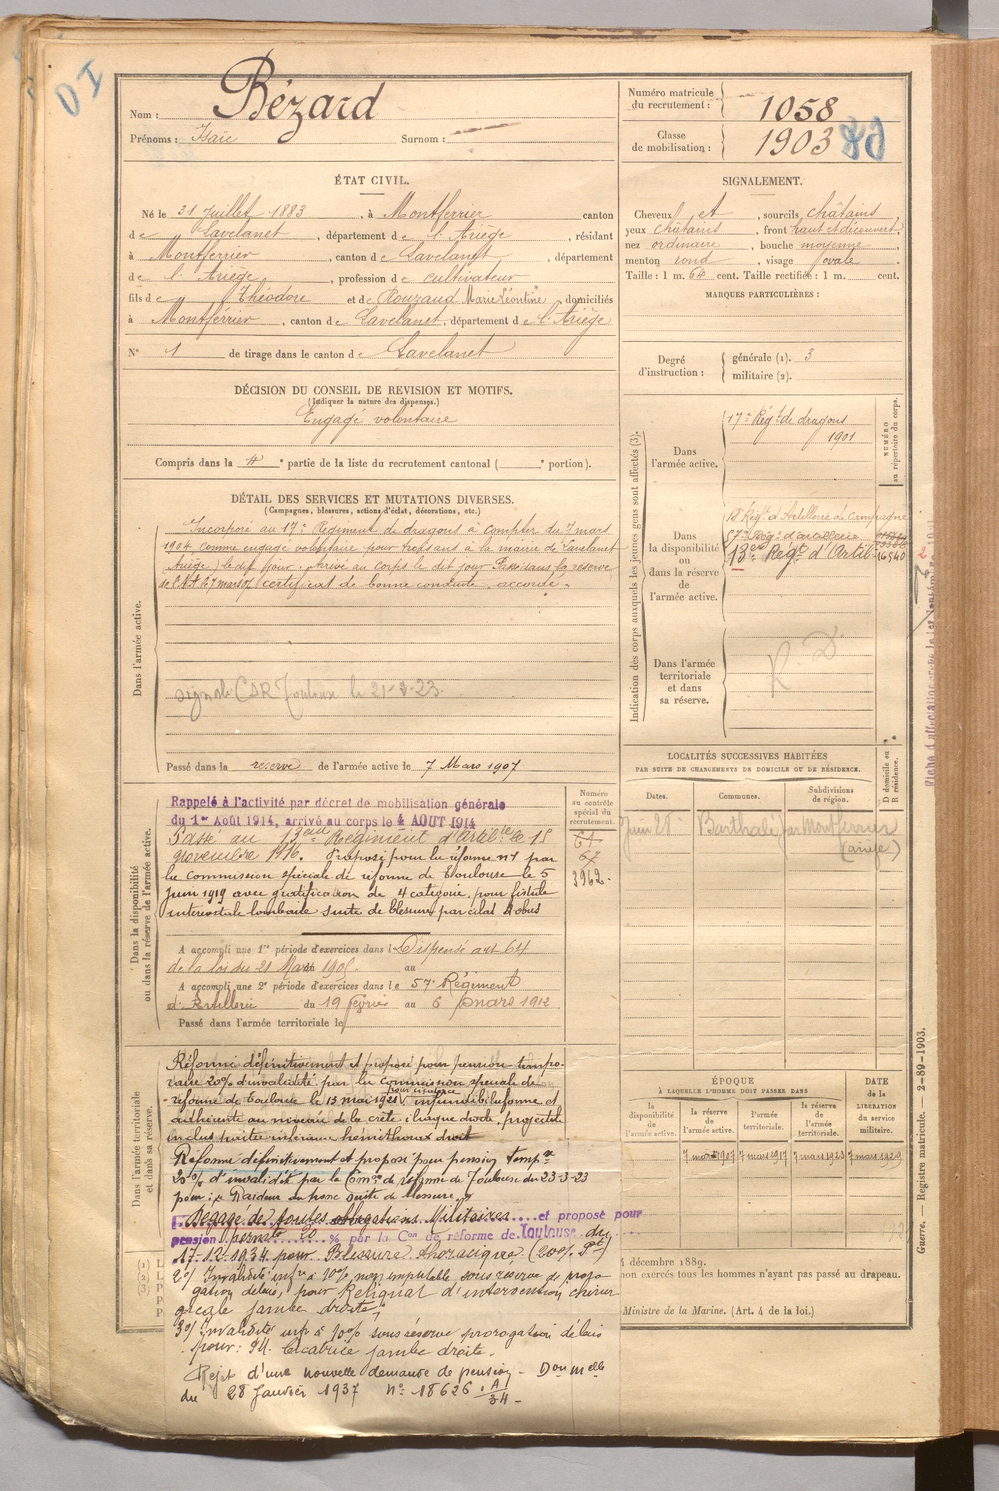 Nom : Bézard
Prénoms : Isaïe Surnom :
Numéro matricule du recrutement : 1058
Classe de mobilisation : 1903
ÉTAT CIVIL.
Né le 31 Juillet 1883, à Montferrier canton
de Lavelanet, département de l'Ariège, résidant
à Montferrier, canton de Lavelanet, département
de l'Ariège, profession de cultivateur
fils de Théodore et de Rouzaud Marie Léontine, domiciliés
à Montférrier, canton de Lavelanet, département de l'Ariège
N° 1 de tirage dans le canton de Lavelanet
SIGNALEMENT.
Cheveux et, sourcils châtains,
yeux châtains, front haut et découvert,
nez ordinaire, bouche moyenne
menton rond, visage ovale.
Taille : 1 m. 64 cent. Taille rectifiée : 1 m. cent.
MARQUES PARTICULIÈRES :
Degré d'instruction : générale (1). 3
militaire (2).
DÉCISION DU CONSEIL DE REVISION ET MOTIFS.
(Indiquer la nature des dispenses.)
Engagé volontaire
Compris dans la 4e partie de la liste du recrutement cantonal ( e portion).
DÉTAIL DES SERVICES ET MUTATIONS DIVERSES.
(Campagnes, blessures, actions d'éclat, décorations, etc.)
Dans l'armée active.
Incorporé au 17e Régiment de dragons à compter du 7 mars
1904, comme engagé volontaire pour trois ans à la mairie de Lavelanet
(Ariège) le dit jour. Arrivé au corps le dit jour. Passé dans la réserve
de l'A. A. le 7 mars 07, certificat de bonne conduite accordé.
Signalé CSR Toulouse le 21-3-23.
Passé dans la réserve de l'armée active le 7 Mars 1907
Indication des corps auxquels les jeunes gens sont affectés (3).
NUMÉRO au répertoire du corps.
Dans l'armée active.
17e Régt de dragons
1901
Dans la disponibilité ou dans la réserve de l'armée active.
18e Régt d'Artillerie de Campagne
57e Régt d'artillerie
13e Régt d'Artil.
Dans l'armée territoriale et dans sa réserve.
R. D
LOCALITÉS SUCCESSIVES HABITÉES
PAR SUITE DE CHANGEMENTS DE DOMICILE OU DE RÉSIDENCE.
D domicile ou R résidence.
Dates. Communes. Subdivisions de région.
Juin 28 par Montferrier
(ariège)
Dans la disponibilité ou dans la réserve de l'armée active.
Numéro au contrôle spécial du recrutement.
3962.
Rappelé à l'activité par décret de mobilisation générale
du 1er Août 1914, arrivé au corps le 4 AOUT 1914
Passé au 13ème Régiment d'Artillie le 15
novembre 1916. Proposé pour la réforme n°1 par
la Commission spéciale de réforme de Toulouse le 5
Juin 1919 avec gratification de 4 catégorie, pour fistule
intercostale lombaire suite de blessure par éclat d'obus
A accompli une 1re période d'exercices dans l Dispensé art 64
de la loi du 21 Mars 1905. au
A accompli une 2e période d'exercices dans le 57e Régiment
d'Artillerie du 19 février au 6 mars 1912
Passé dans l'armée territoriale le
Dans l'armée territoriale et dans sa réserve.
Réformé définitivement et proposé pour pension tempo-
raire 20% d'invalidité par la commission spéciale de
réforme de Toulouse le 13 mai 1921 pour infundibuliforme et
adhérente au niveau de la crête iliaque droite, projectile
inclus partie inférieure hémithorax droit
Réforme définitivement et proposé pour pension tempre
20% d'invalidité par la Comon de réforme de Toulouse du 23-3-23
pour : Raideur du tronc suite de blessure.
Dégagé de toutes obligations Militaires et proposé pour
pension permte 20 % par la Con de réforme de Toulouse du
17-12-1934 pour Blessure thoracique (20% Pt)
2°/ Invalidité infre à 10% non imputable, sous réserve de proro-
gation délais, pour Reliquat d'intervention chirur-
gicale jambe droite,
3°/ Invalidité inf à 10% sous réserve prorogation délais
pour : Pl. Cicatrice jambe droite.
Rejet d'une nouvelle demande de pension - Don melle
du 28 Janvier 1937 n° 18626
ÉPOQUE
À LAQUELLE L'HOMME DOIT PASSER DANS
la disponibilité de l'armée active. la réserve de l'armée active. l'armée territoriale. la réserve de l'armée territoriale.
DATE de la LIBÉRATION du service militaire.
7 mars 1907 7 mars 1917 7 mars 1923 7 mars 1929
décembre 1889.
non exercés tous les hommes n'ayant pas passé au drapeau.
Ministre de la Marine. (Art. 4 de la loi.)
Guerre. — Registre matricule. — 2-89-1903.